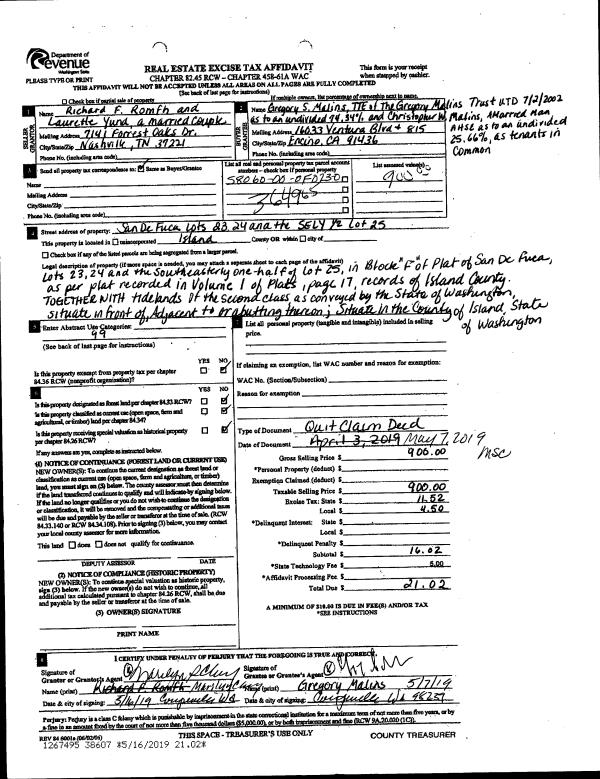 Department of
Revenue
Washington State
PLEASE TYPE OR PRINT
REAL ESTATE EXCISE TAX AFFIDAVIT
CHAPTER 82.45 RCW – CHAPTER 458-61A WAC
This form is your receipt
when stamped by cashier.
THIS AFFIDAVIT WILL NOT BE ACCEPTED UNLESS ALL AREAS ON ALL PAGES ARE FULLY COMPLETED
(See back of last page for instructions)
Check box if partial sale of property
If multiple owners, list percentage of ownership next to name.
1 Name Richard F. Romfh and
Laurette Yund, a married couple
SELLER GRANTOR
Mailing Address 7141 Forrest Oaks Dr.
City/State/Zip Nashville, TN 37221
Phone No. (including area code)
2 Name Gregory S. Malins, TTE of The Gregory Malins Trust UTD 7/2/2002
as to an undivided 74.34% and Christopher W. Malins, A Married Man
AHSE as to an undivided
25.66%, as tenants in
Common
BUYER GRANTEE
Mailing Address 16033 Ventura Blvd # 815
City/State/Zip Encino, CA 91436
Phone No. (including area code)
3 Send all property tax correspondence to: Same as Buyer/Grantee
Name
Mailing Address
City/State/Zip
Phone No. (including area code)
List all real and personal property tax parcel account
numbers – check box if personal property
S8060-00-0F023-0
364965
List assessed value(s)
900.00
4 Street address of property: San De Fuca Lots 23, 24 and the SELY 1/2 Lot 25
This property is located in unincorporated Island County OR within city of
Check box if any of the listed parcels are being segregated from a larger parcel.
Legal description of property (if more space is needed, you may attach a separate sheet to each page of the affidavit)
Lots 23, 24 and the Southeasterly one-half of Lot 25, in Block "F" of Plat of San De Fuca,
as per plat recorded in Volume 1 of Plats, page 17, records of Island County.
TOGETHER WITH tidelands of the second class as conveyed by the State of Washington,
situate in front of, Adjacent to or abutting thereon; Situate in the County of Island, State
of Washington
5 Enter Abstract Use Categories:
99
(See back of last page for instructions)
YES NO
Is this property exempt from property tax per chapter
84.36 RCW (nonprofit organization)?
6
YES NO
Is this property designated as forest land per chapter 84.33 RCW?
Is this property classified as current use (open space, farm and
agricultural, or timber) land per chapter 84.34?
Is this property receiving special valuation as historical property
per chapter 84.26 RCW?
If any answers are yes, complete as instructed below.
(1) NOTICE OF CONTINUANCE (FOREST LAND OR CURRENT USE)
NEW OWNER(S): To continue the current designation as forest land or
classification as current use (open space, farm and agriculture, or timber)
land, you must sign on (3) below. The county assessor must then determine
if the land transferred continues to qualify and will indicate by signing below.
If the land no longer qualifies or you do not wish to continue the designation
or classification, it will be removed and the compensating or additional taxes
will be due and payable by the seller or transferor at the time of sale. (RCW
84.33.140 or RCW 84.34.108). Prior to signing (3) below, you may contact
your local county assessor for more information.
This land does does not qualify for continuance.
DEPUTY ASSESSOR DATE
(2) NOTICE OF COMPLIANCE (HISTORIC PROPERTY)
NEW OWNER(S): To continue special valuation as historic property,
sign (3) below. If the new owner(s) do not wish to continue, all
additional tax calculated pursuant to chapter 84.26 RCW, shall be due
and payable by the seller or transferor at the time of sale.
(3) OWNER(S) SIGNATURE
PRINT NAME
7 List all personal property (tangible and intangible) included in selling
price.
If claiming an exemption, list WAC number and reason for exemption:
WAC No. (Section/Subsection)
Reason for exemption
Type of Document Quit Claim Deed
Date of Document April 3, 2019 May 7, 2019
MSC
Gross Selling Price $ 900.00
*Personal Property (deduct) $
Exemption Claimed (deduct) $
Taxable Selling Price $ 900.00
Excise Tax: State $ 11.52
Local $ 4.50
*Delinquent Interest: State $
Local $
*Delinquent Penalty $
Subtotal $ 16.02
*State Technology Fee $ 5.00
*Affidavit Processing Fee $
Total Due $ 21.02
A MINIMUM OF $10.00 IS DUE IN FEE(S) AND/OR TAX
*SEE INSTRUCTIONS
8 I CERTIFY UNDER PENALTY OF PERJURY THAT THE FOREGOING IS TRUE AND CORRECT.
Signature of
Grantor or Grantor's Agent
Name (print) Richard F. Romfh
Date & city of signing: 5/16/19 Coupeville Wa
Signature of
Grantee or Grantee's Agent
Name (print) Gregory Malins 5/7/19
Date & city of signing: Coupeville Wa 98239
Perjury: Perjury is a class C felony which is punishable by imprisonment in the state correctional institution for a maximum term of not more than five years, or by
a fine in an amount fixed by the court of not more than five thousand dollars ($5,000.00), or by both imprisonment and fine (RCW 9A.20.020 (1C)).
REV 84 0001a (06/02/06)
THIS SPACE - TREASURER'S USE ONLY
COUNTY TREASURER
1267495 38607 *5/16/2019 21.02*